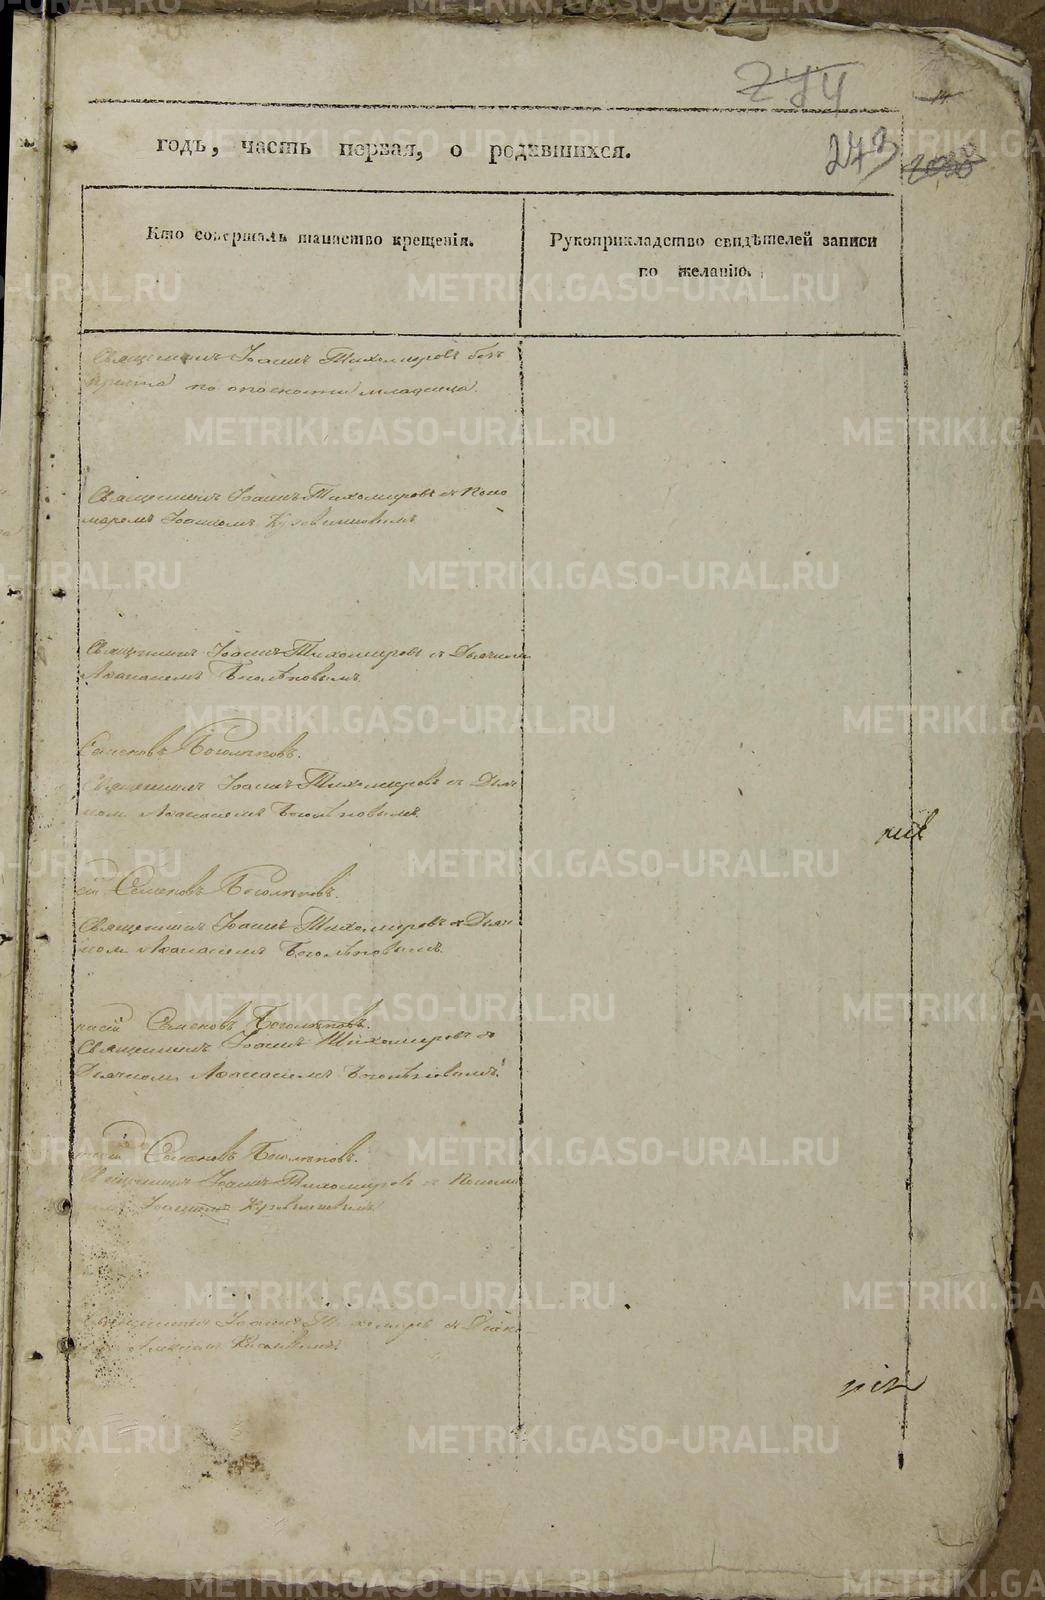 244
273
2038
годъ, часть первая, о родившихся.
Кто совершалъ таинство крещенія.
Рукоприкладство свидѣтелей записи
по желанію.
Священникъ Іоаннъ Тихомировъ безъ
причта по опасности младенца
Священникъ Іоаннъ Тихомировъ съ Поно
маремъ Іоанномъ
Священникъ Іоаннъ Тихомировъ съ Дьячком
Афанасіемъ Боголѣповымъ
Семеновъ Боголѣповъ.
Священникъ Іоаннъ Тихомировъ съ Дьяч
ком Афанасіемъ Боголѣповымъ.
сій Семеновъ Боголѣповъ.
Священникъ Іоаннъ Тихомировъ съ Дьяч
ком Афанасіемъ Боголѣповымъ.
насій Семеновъ Боголѣповъ.
Священникъ Іоаннъ Тихомировъ съ
Дьячком Афанасіемъ Боголѣповымъ.
насій Семеновъ Боголѣповъ.
Священникъ Іоаннъ Тихомировъ съ Поном
Іоанном
Священникъ Іоаннъ Тихомиров съ
METRIKI.GASO-URAL.RU